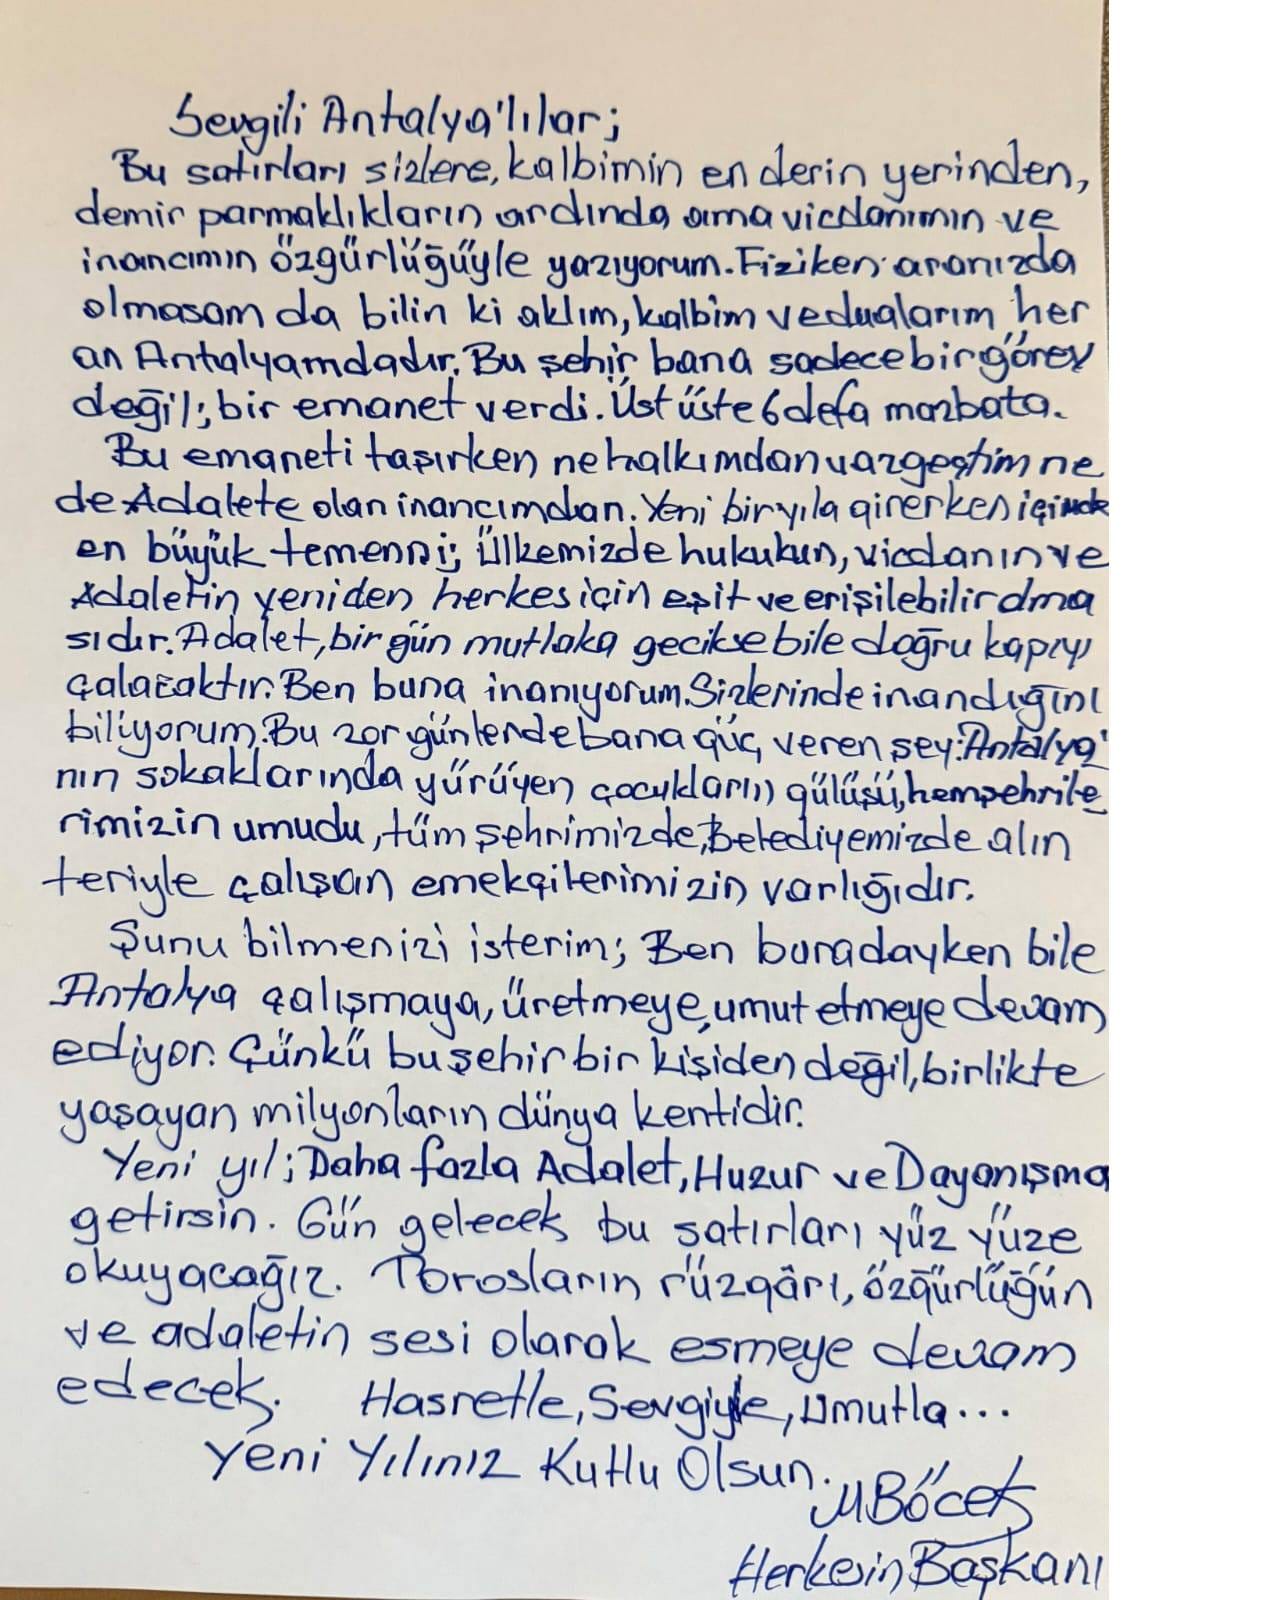 Sevgili Antalya'lılar;
Bu satırları sizlere, kalbimin en derin yerinden,
demir parmaklıkların ardında ama vicdanımın ve
inancımın özgürlüğüyle yazıyorum. Fiziken aranızda
olmasam da bilin ki aklım, kalbim ve dualarım her
an Antalyamdadır. Bu şehir bana sadece bir görev
değil; bir emanet verdi. Üst üste 6 defa mazbata.
Bu emaneti taşırken ne halkımdan vazgeçtim ne
de Adalete olan inancımdan. Yeni bir yıla girerken içimde
en büyük temenni; Ülkemizde hukukun, vicdanın ve
Adaletin yeniden herkes için eşit ve erişilebilir olma
sıdır. Adalet, bir gün mutlaka gecikse bile doğru kapıyı
çalacaktır. Ben buna inanıyorum. Sizlerinde inandığını
biliyorum. Bu zor günlerde bana güç veren şey: Antalya'
nın sokaklarında yürüyen çocukların gülüşü, hemşehrile
rimizin umudu, tüm şehrimizde, Belediyemizde alın
teriyle çalışan emekçilerimizin varlığıdır.
Şunu bilmenizi isterim; Ben buradayken bile
Antalya çalışmaya, üretmeye, umut etmeye devam
ediyor. Çünkü bu şehir bir kişiden değil, birlikte
yaşayan milyonların dünya kentidir.
Yeni yıl; Daha fazla Adalet, Huzur ve Dayanışma
getirsin. Gün gelecek bu satırları yüz yüze
okuyacağız. Torosların rüzgârı, özgürlüğün
ve adaletin sesi olarak esmeye devam
edecek. Hasretle, Sevgiyle, Umutla...
Yeni Yılınız Kutlu Olsun.
M Böcek
Herkesin Başkanı